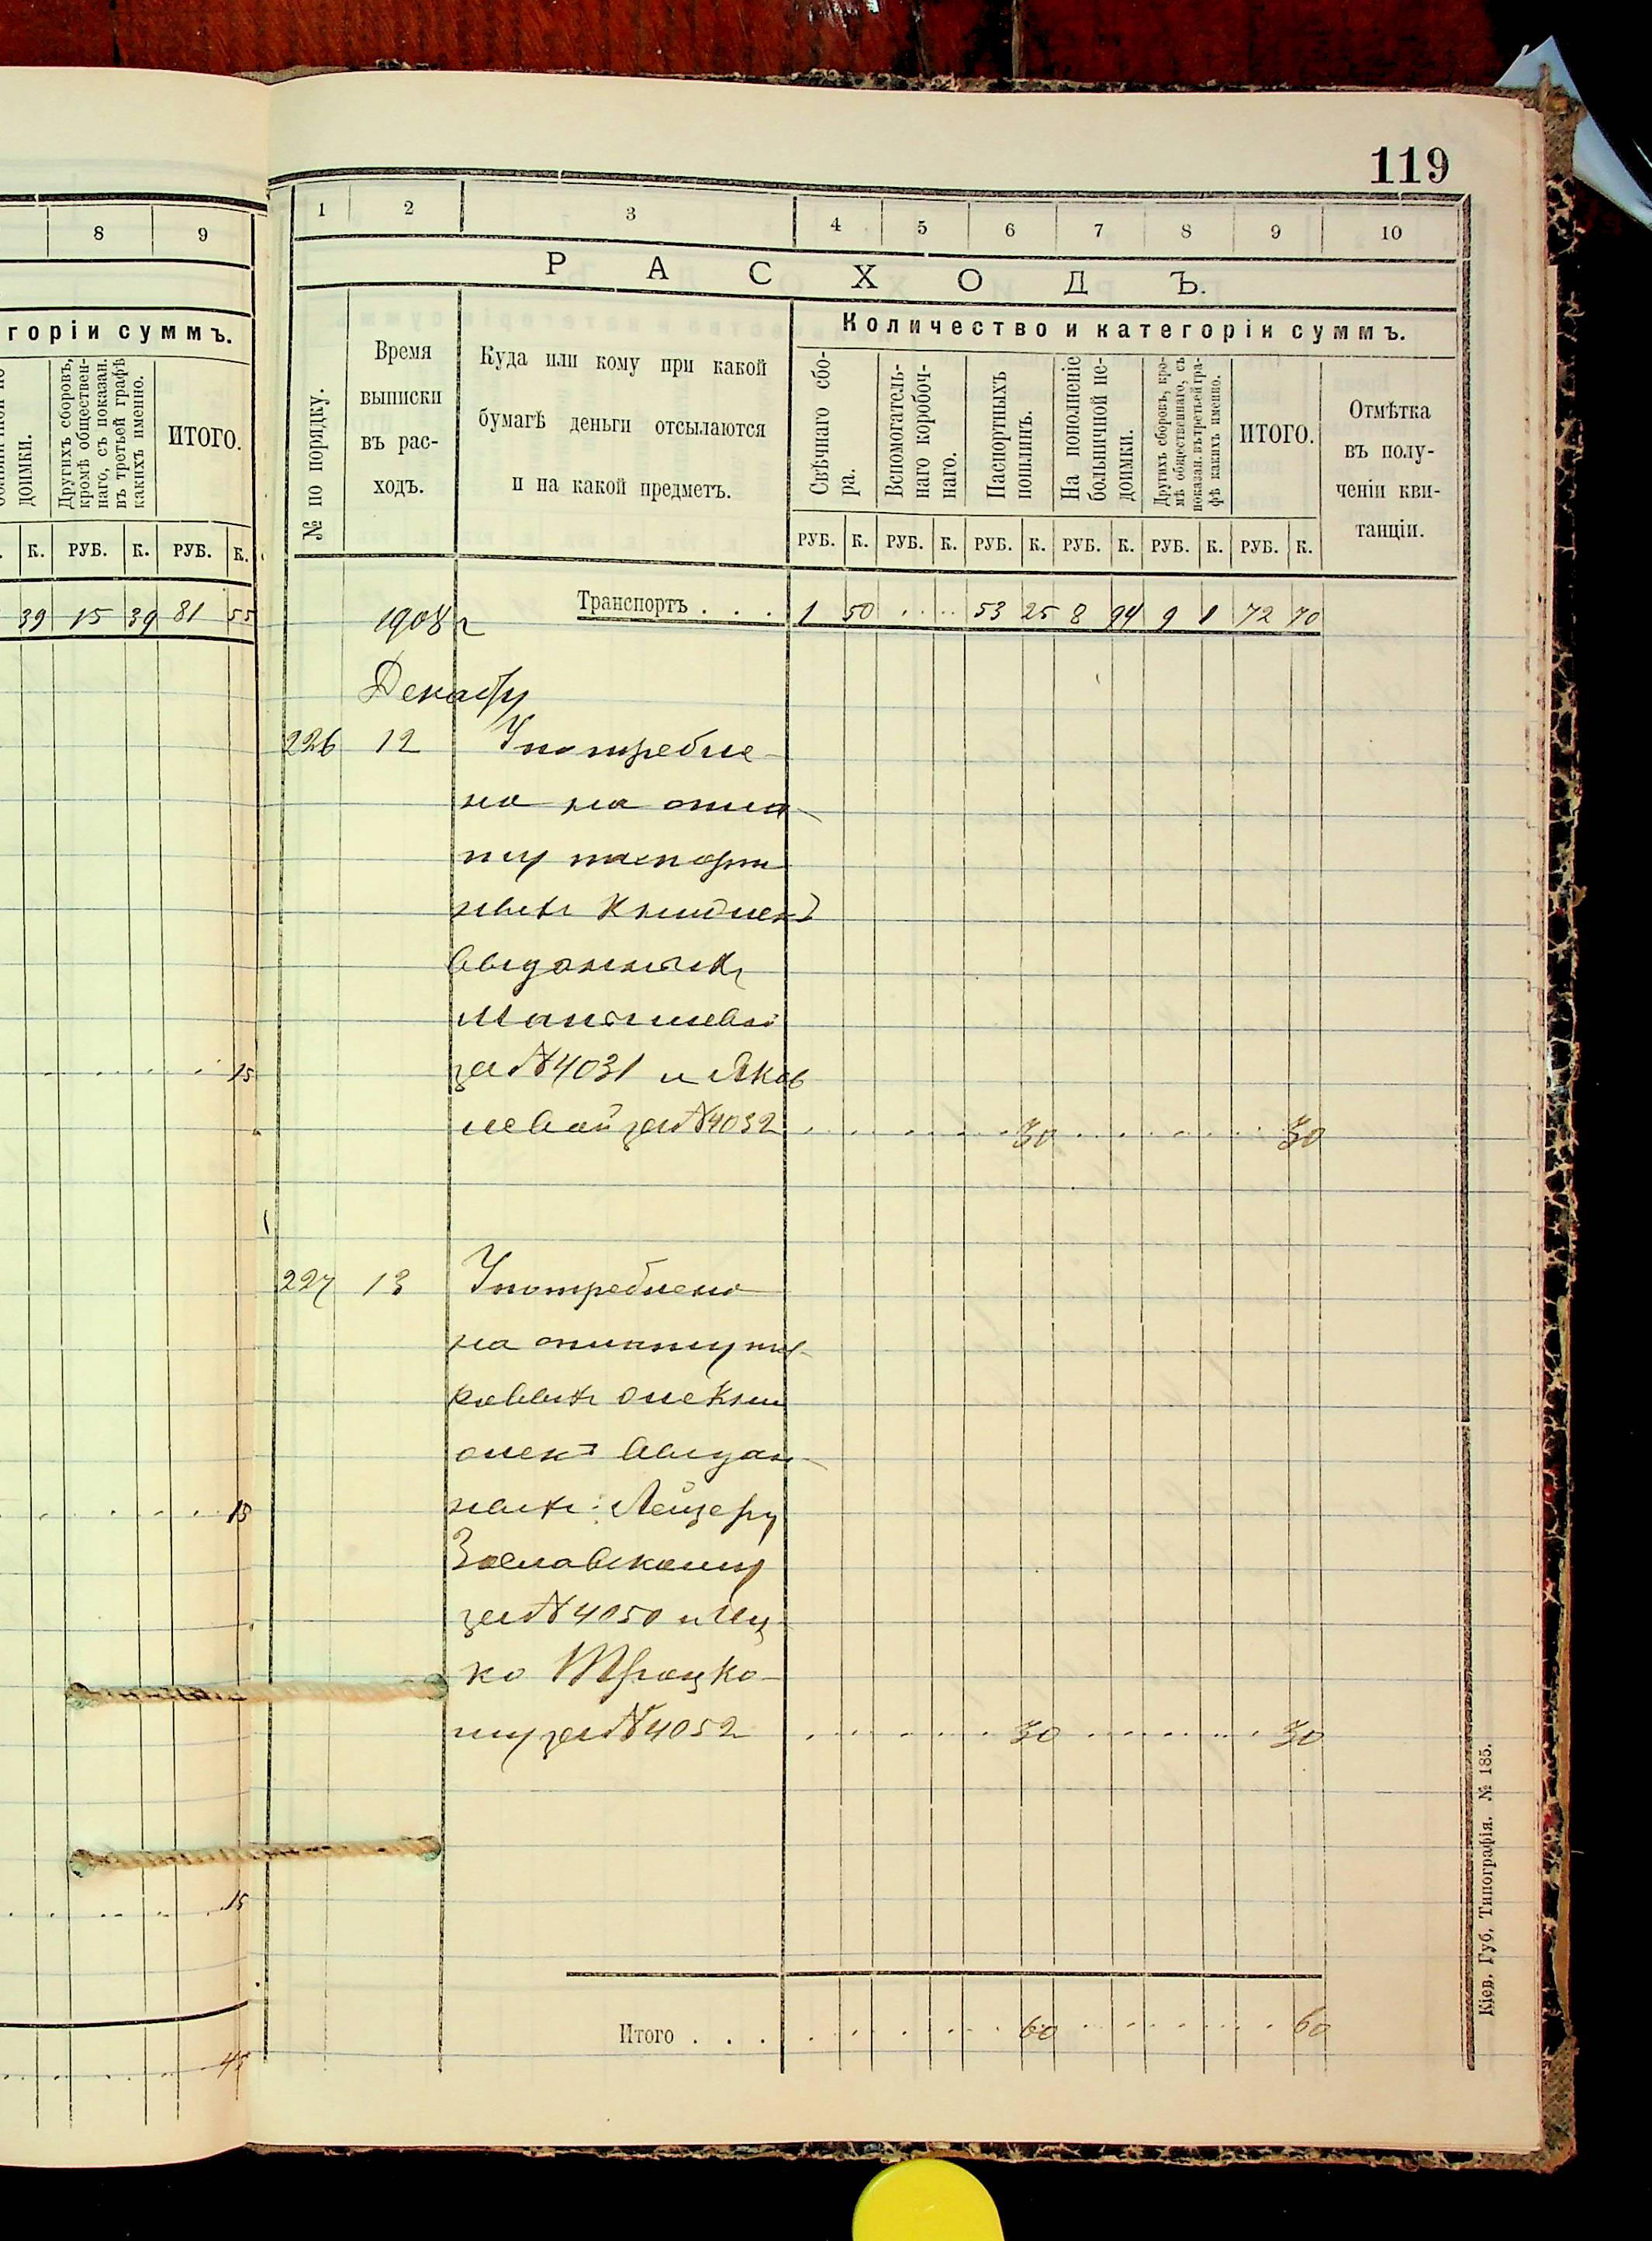 119
8 9
горіи суммъ.
доимки.
Другихъ сборовъ,
кромѣ обществен-
наго, съ показан.
въ третьей графѣ
какихъ именно.
ИТОГО.
К. РУБ. К. РУБ. К.
39 15 39 81 55
15
15
15
45
1 2 3 4 5 6 7 8 9 10
РАСХОДЪ.
№ по порядку.
Время
выписки
въ рас-
ходъ.
Куда или кому при какой
бумагѣ деньги отсылаются
и на какой предметъ.
Количество и категоріи суммъ.
Свѣчнаго сбо-
ра.
Вспомогатель-
наго коробоч-
наго.
Паспортныхъ
пошлинъ.
На пополненіе
больничной не-
доимки.
Другихъ сборовъ, кро-
мѣ общественнаго, съ
показан. въ третьей гра-
фѣ какихъ именно.
ИТОГО.
Отмѣтка
въ полу-
ченіи кви-
танціи.
РУБ. К. РУБ. К. РУБ. К. РУБ. К. РУБ. К. РУБ. К.
1908 г Транспортъ . . . 1 50 53 25 8 94 9 1 72 70
Декабр
226 12 Употребле-
но на опла-
ту паспорт
ныхъ книжекъ
выданныхъ
за № 4031 и Яков
левой за № 4032 30 30
227 13 Употреблено
на оплату
выдан-
ныхъ: Лейзеру
Заславскому
за № 4050 и Иц-
ко Троцко-
му за № 4052 30 30
Итого . . . 60 60
Кіев. Губ. Типографія. № 185.